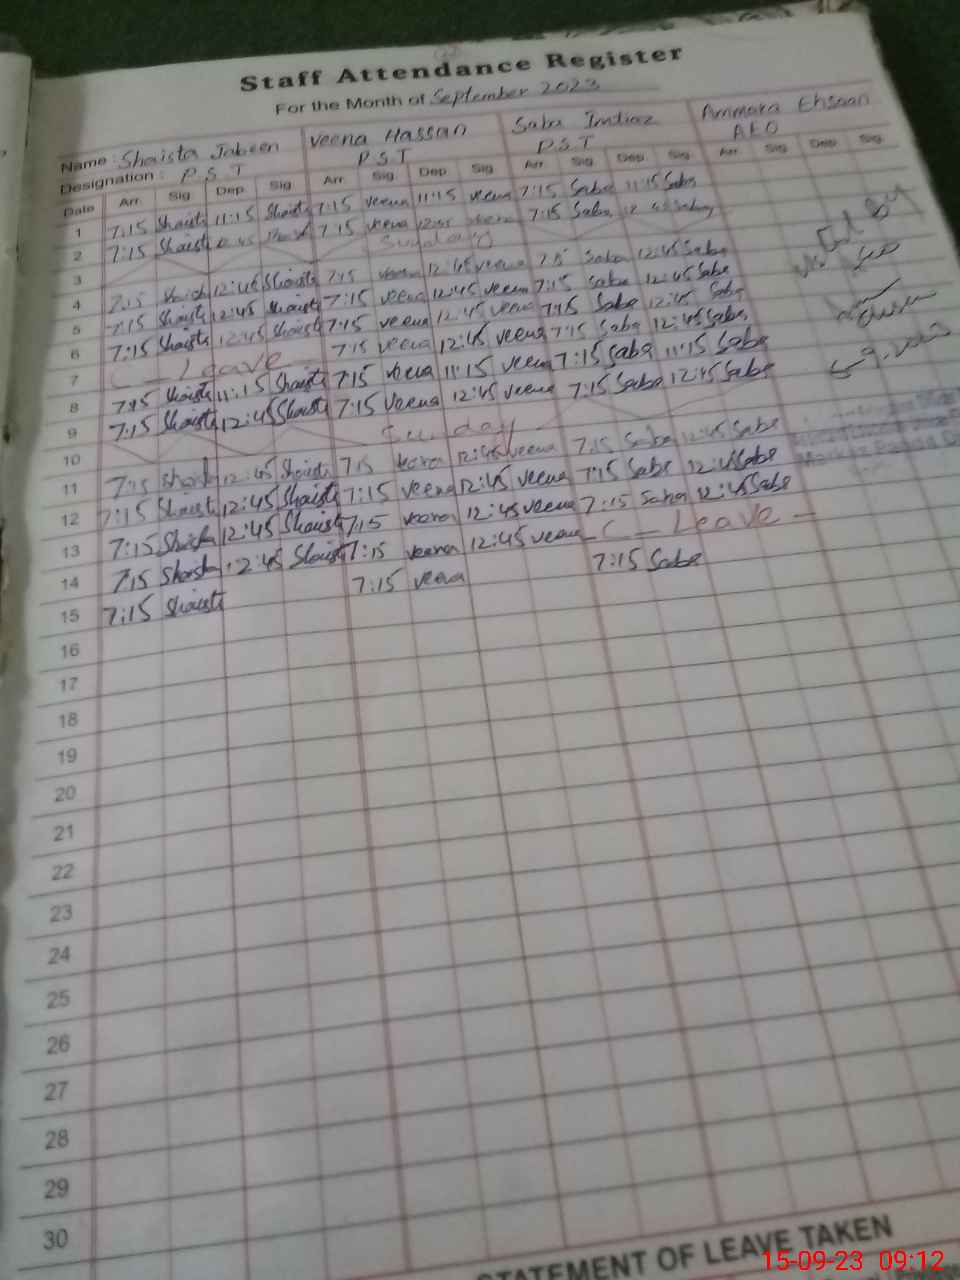 Staff Attendance Register
For the Month of September 2023
Name : Shaista Jabeen Veena Hassan Saba Imtiaz Ammara Ehsaan
Designation : P S T P S T P.S.T AEO
Date Arr. Sig Dep. Sig Arr. Sig Dep Sig Arr. Sig Dep. Sig Arr. Sig Dep Sig.
1 7:15 Shaista 11:15 Shaista 7:15 veena 11:15 veena 7:15 Saba 11:15 Saba
2 7:15 Shaista 7:15 veena 7:15 Saba
3 Sunday
4 7:15 12:45 Shaista 7:15 veena 12:45 veena Saba 12:45 Saba
5 7:15 Shaista 12:45 Shaista 7:15 veena 12:45 veena 7:15 Saba 12:45 Saba
6 7:15 Shaista 12:45 Shaista 7:15 veena 12:45 veena 7:15 Saba 12:45 Saba
7 Leave 7:15 veena 12:45 veena 7:15 Saba 12:45 Saba
8 7:15 Shaista 11:15 Shaista 7:15 veena 11:15 veena 7:15 Saba 11:15 Saba
9 7:15 Shaista 12:45 Shaista 7:15 veena 12:45 veena 7:15 Saba 12:45 Saba
10 Sunday
11 7:15 12:45 Shaista 7:15 veena 12:45 veena 7:15 Saba 12:45 Saba
12 7:15 Shaista 12:45 Shaista 7:15 veena 12:45 veena 7:15 Saba 12:45 Saba
13 7:15 Shaista 12:45 Shaista 7:15 veena 12:45 veena 7:15 Saba 12:45 Saba
14 7:15 Shaista 12:45 Shaista 7:15 veena 12:45 veena C - Leave -
15 7:15 Shaista 7:15 veena 7:15 Saba
16
17
18
19
20
21
22
23
24
25
26
27
28
29
30
STATEMENT OF LEAVE TAKEN
15-09-23 09:12